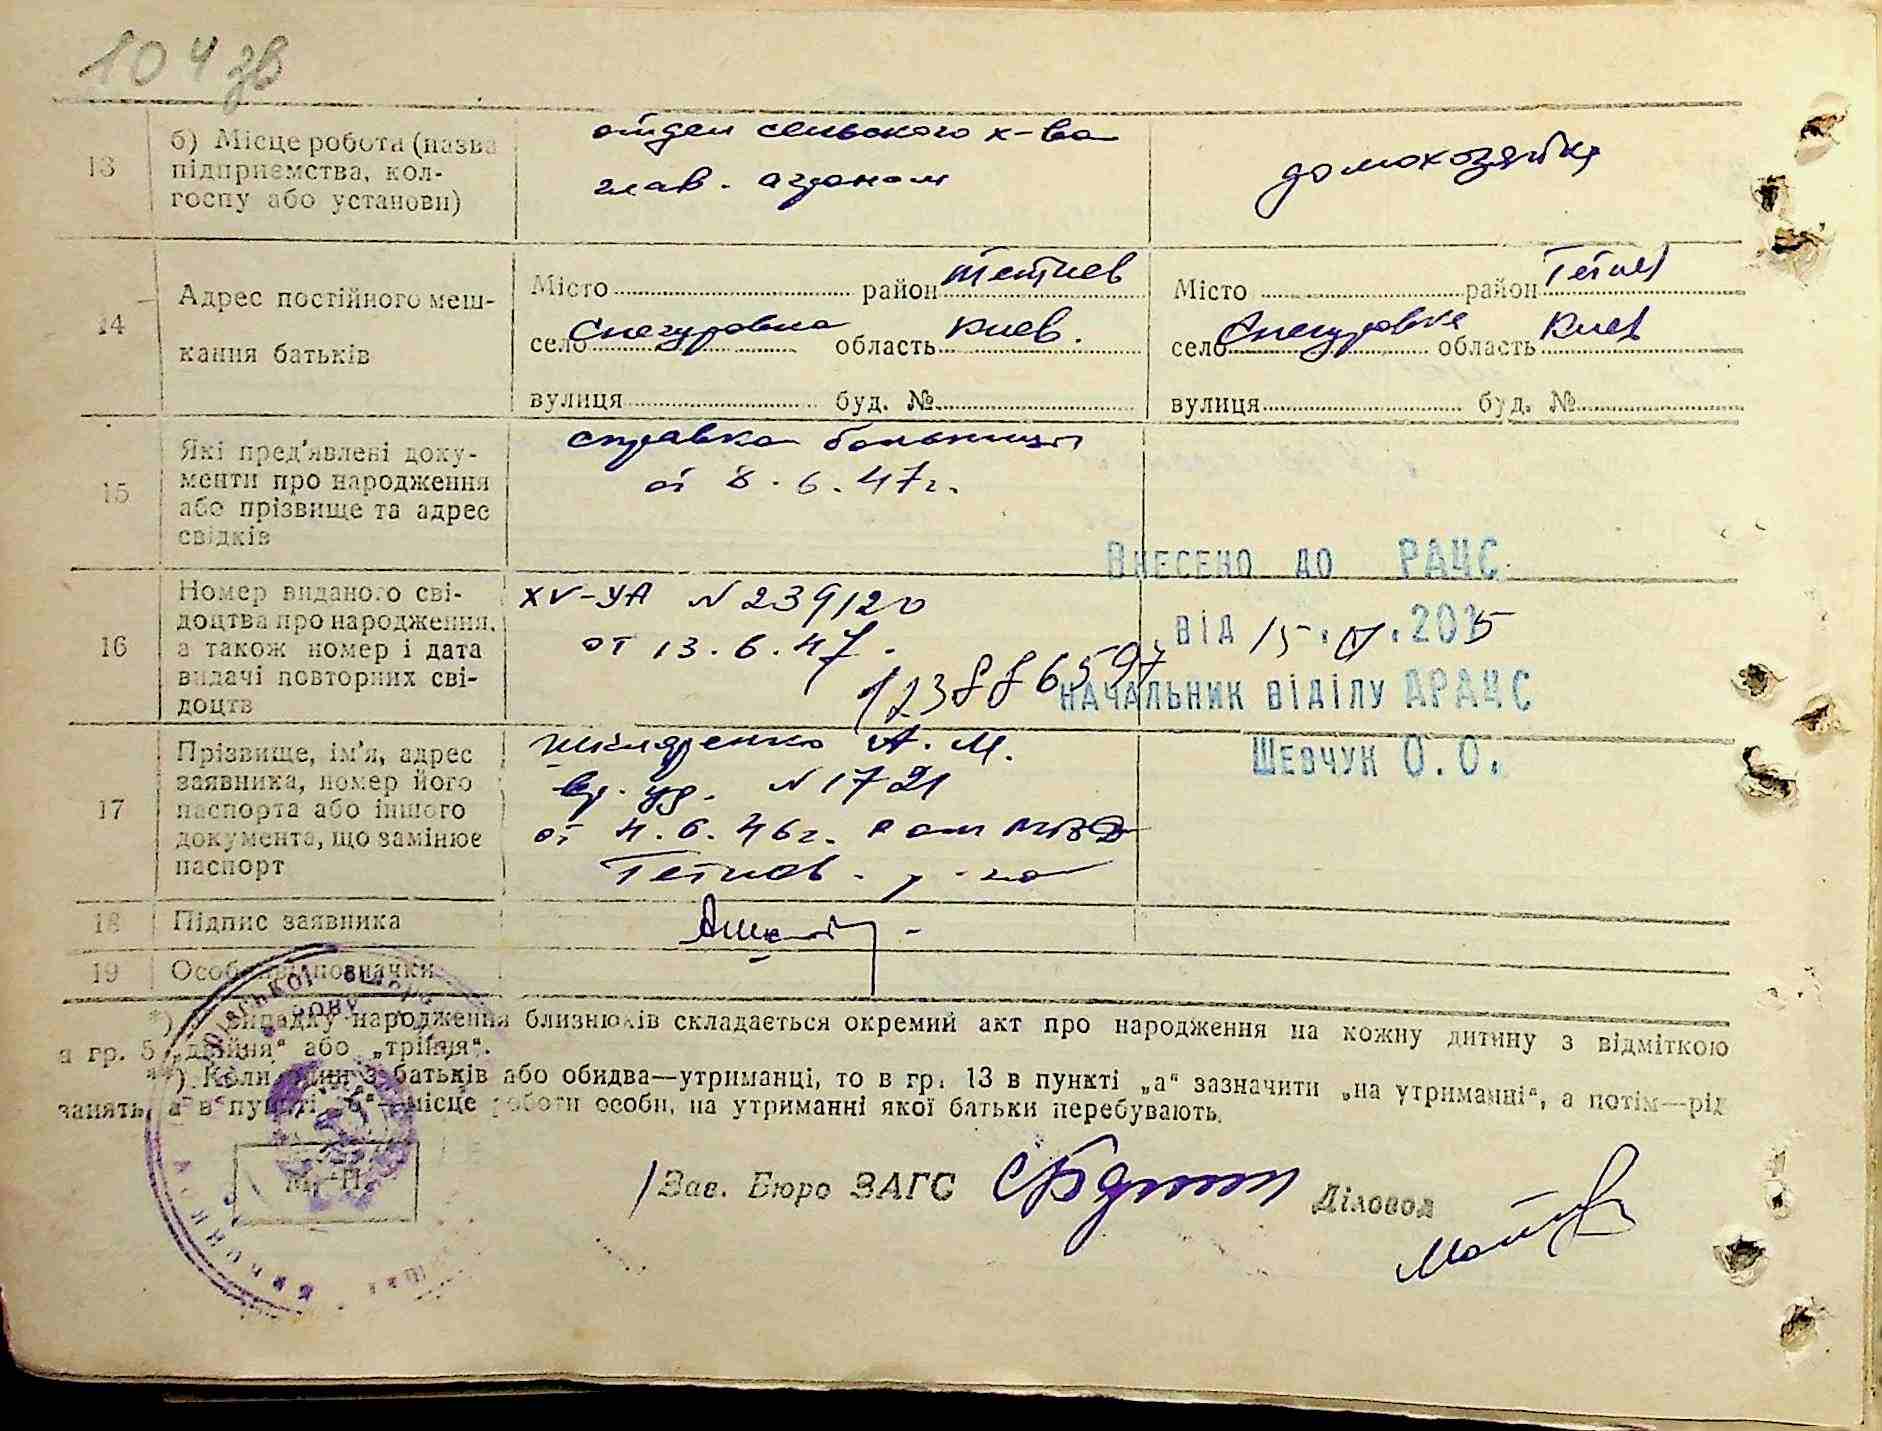 104 зв
13
б) Місце роботи (назва
підприємства, кол-
госпу або установи)
отдел сельского х-ва
глав. агроном
домохозяйка
14
Адрес постійного меш-
кання батьків
Місто район Тетиев
село Снегуровка область Киев.
вулиця буд. №
Місто район Тетиев
село Снегуровка область Киев
вулиця буд. №
15
Які пред'явлені доку-
менти про народження
або прізвище та адрес
свідків
справка больницы
от 8.6.47г.
16
Номер виданого сві-
доцтва про народження,
а також номер і дата
видачі повторних сві-
доцтв
XV-УА N 239120
от 13.6.47.
123886597
Внесено до РАЦС
від 15. .2015
начальник відділу ДРАЦС
Шевчук О.О.
17
Прізвище, ім'я, адрес
заявника, номер його
паспорта або іншого
документа, що замінює
паспорт
Шкляренко А.М.
вр. уд. N 1721
от 4.6.46г. Р отм МВД
Тетиев. р-на
18
Підпис заявника
19
Особливі позначки
*) У випадку народження близнюків складається окремий акт про народження на кожну дитину з відміткою
в гр. 5 „двійня“ або „трійня“.
**) Коли один з батьків або обидва—утриманці, то в гр. 13 в пункті „а“ зазначити „на утриманні“, а потім—рід
занять, а в пункті „б“—місце роботи особи, на утриманні якої батьки перебувають.
М. П.
Зав. Бюро ЗАГС
Діловод